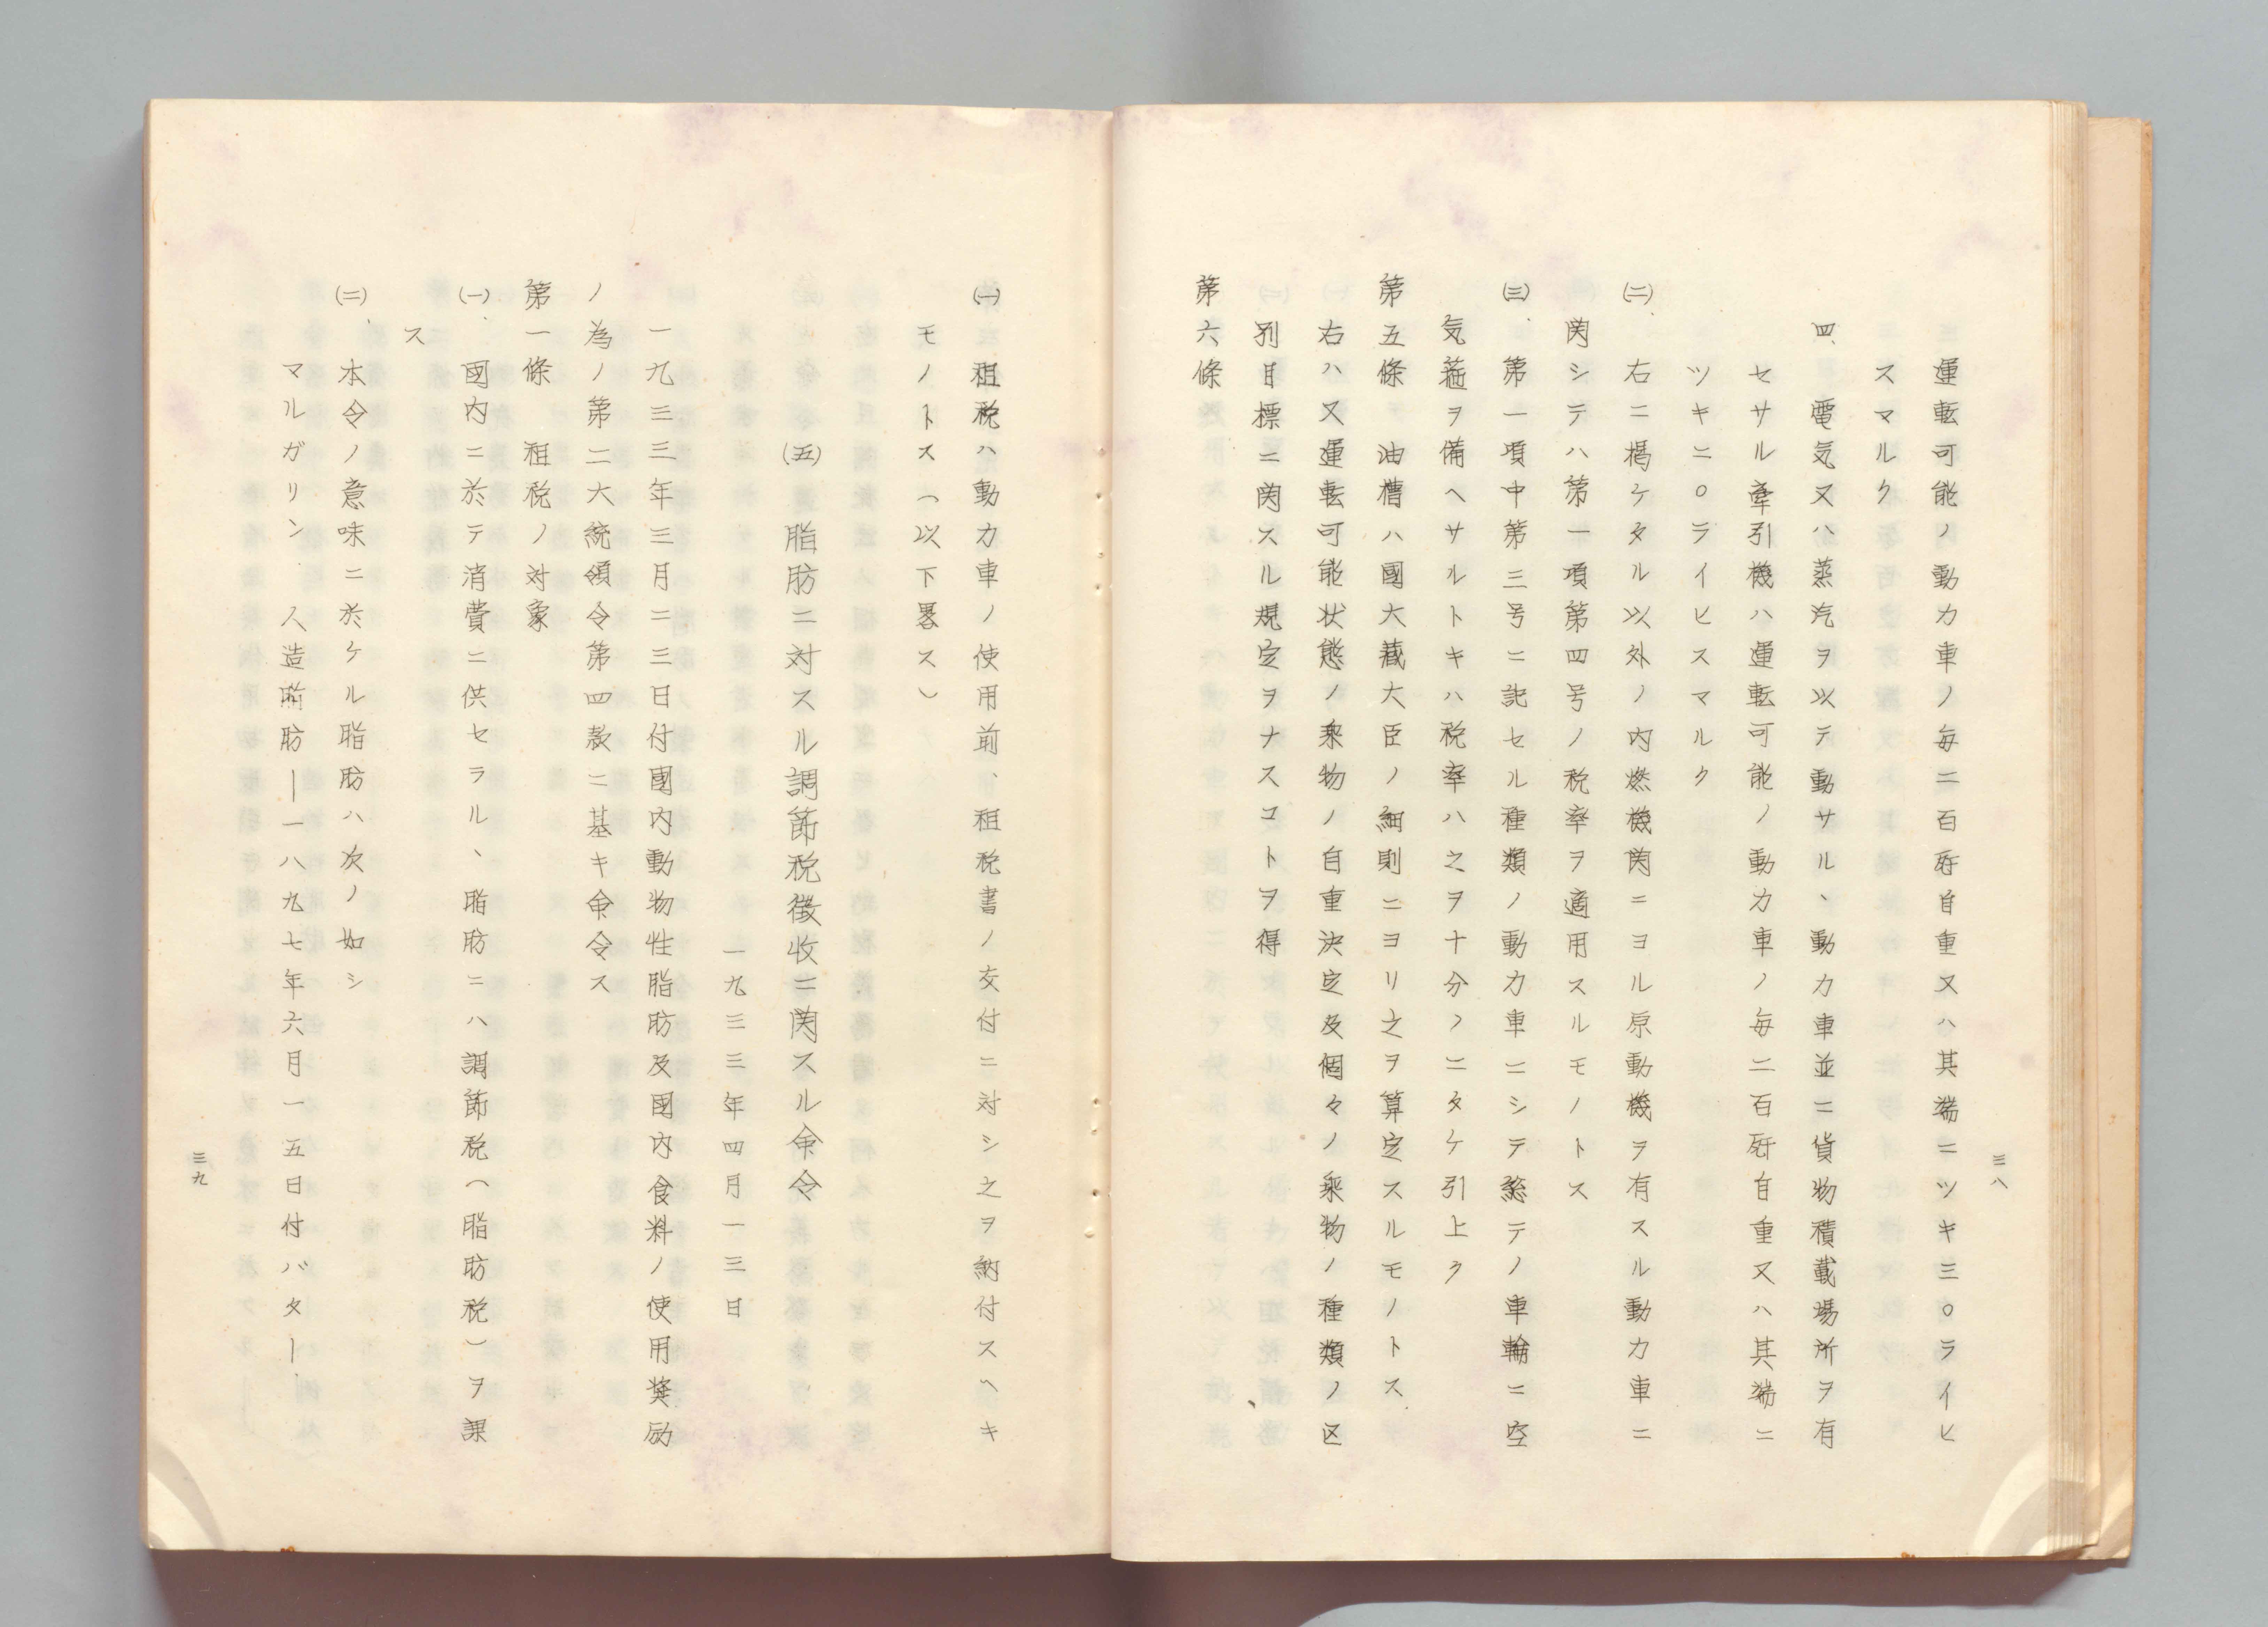 三八
運転可能ノ動力車ノ毎二百瓩自重又ハ其端ニツキ三〇ライヒ
スマルク
四、電気又ハ蒸汽ヲ以テ動サル、動力車並ニ貨物積載場所ヲ有
セサル牽引機ハ運転可能ノ動力車ノ毎二百瓩自重又ハ其端ニ
ツキ二〇ライヒスマルク
(二)、右ニ掲ケタル以外ノ内燃機関ニヨル原動機ヲ有スル動力車ニ
関シテハ第一項第四号ノ税率ヲ適用スルモノトス
(三)、第一項中第三号ニ記セル種類ノ動力車ニシテ総テノ車輪ニ空
気箍ヲ備ヘサルトキハ税率ハ之ヲ十分ノ二タケ引上ク
第五條 油槽ハ國大蔵大臣ノ細則ニヨリ之ヲ算定スルモノトス
右ハ又運転可能状態ノ乗物ノ自重決定及個々ノ乗物ノ種類ノ区
別目標ニ関スル規定ヲナスコトヲ得
第六條
(一)、租税ハ動力車ノ使用前、租税書ノ交付ニ対シ之ヲ納付スヘキ
モノトス(以下畧ス)
(五) 脂肪ニ対スル調節税徴收ニ関スル命令
一九三三年四月一三日
一九三三年三月二三日付國内動物性脂肪及國内食料ノ使用奨励
ノ為ノ第二大統領令第四款ニ基キ命令ス
第一條 租税ノ対象
(一)、國内ニ於テ消費ニ供セラル、脂肪ニハ調節税(脂肪税)ヲ課
ス
(二)、本令ノ意味ニ於ケル脂肪ハ次ノ如シ
マルガリン 人造脂肪―一八九七年六月一五日付バター―
三九